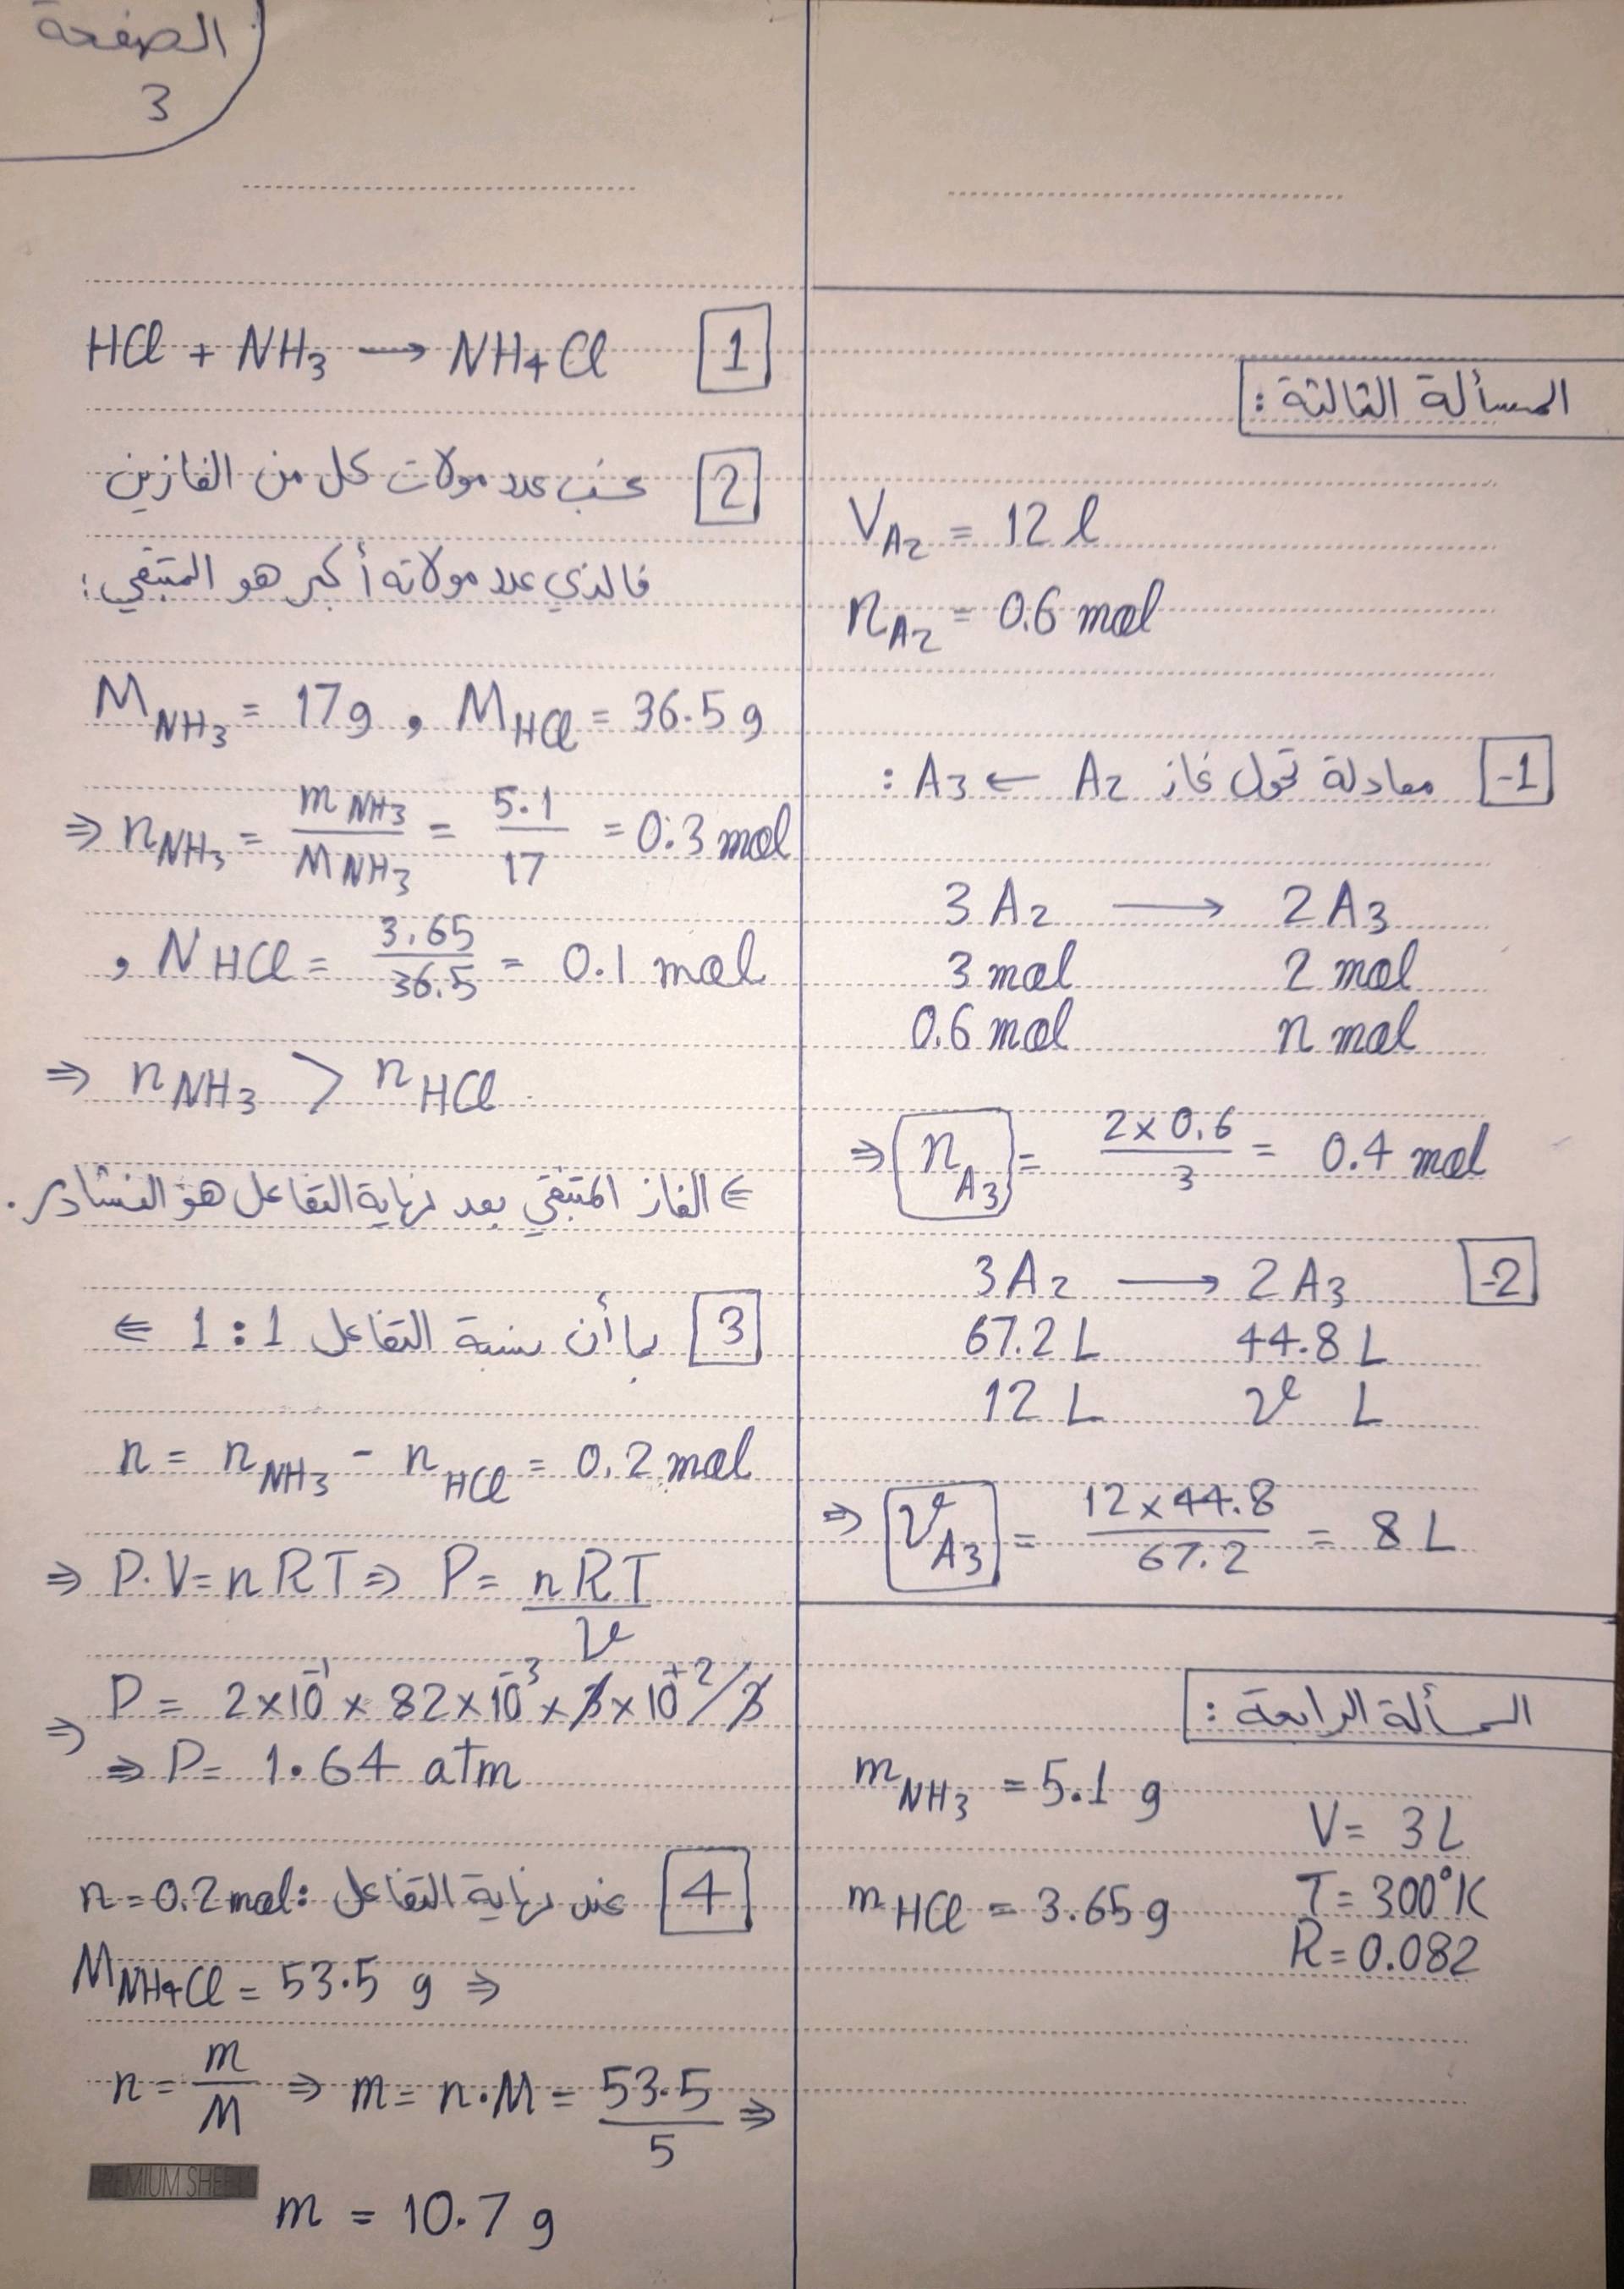 الصفحة
3
المسألة الثالثة :
V_A2 = 12 l
n_A2 = 0.6 mol
-1 معادلة تحول غاز A2 ← A3 :
3 A2 ⟶ 2 A3
3 mol 2 mol
0.6 mol n mol
⇒ n_A3 = 2 × 0.6 / 3 = 0.4 mol
-2 3A2 ⟶ 2 A3
67.2 L 44.8 L
12 L v L
⇒ v_A3 = 12 × 44.8 / 67.2 = 8 L
المسألة الرابعة :
m_NH3 = 5.1 g
V = 3 L
m_HCl = 3.65 g T = 300°K
R = 0.082
1 HCl + NH3 ⟶ NH4Cl
2 نحسب عدد مولات كل من الغازين
فالذي عدد مولاته أكبر هو المتبقي :
M_NH3 = 17 g , M_HCl = 36.5 g
⇒ n_NH3 = m_NH3 / M_NH3 = 5.1 / 17 = 0.3 mol
, N_HCl = 3.65 / 36.5 = 0.1 mol
⇒ n_NH3 > n_HCl
⇐ الغاز المتبقي بعد نهاية التفاعل هو النشادر .
3 بما أن نسبة التفاعل 1 : 1 ⇐
n = n_NH3 - n_HCl = 0.2 mol
⇒ P.V = n R T ⇒ P = n R T / v
⇒ P = 2×10^-1 × 82×10^-3 × 3×10^+2 / 3
⇒ P = 1.64 atm
4 عند نهاية التفاعل : n = 0.2 mol
M_NH4Cl = 53.5 g ⇒
n = m / M ⇒ m = n.M = 53.5 / 5 ⇒
m = 10.7 g
PREMIUM SHEET